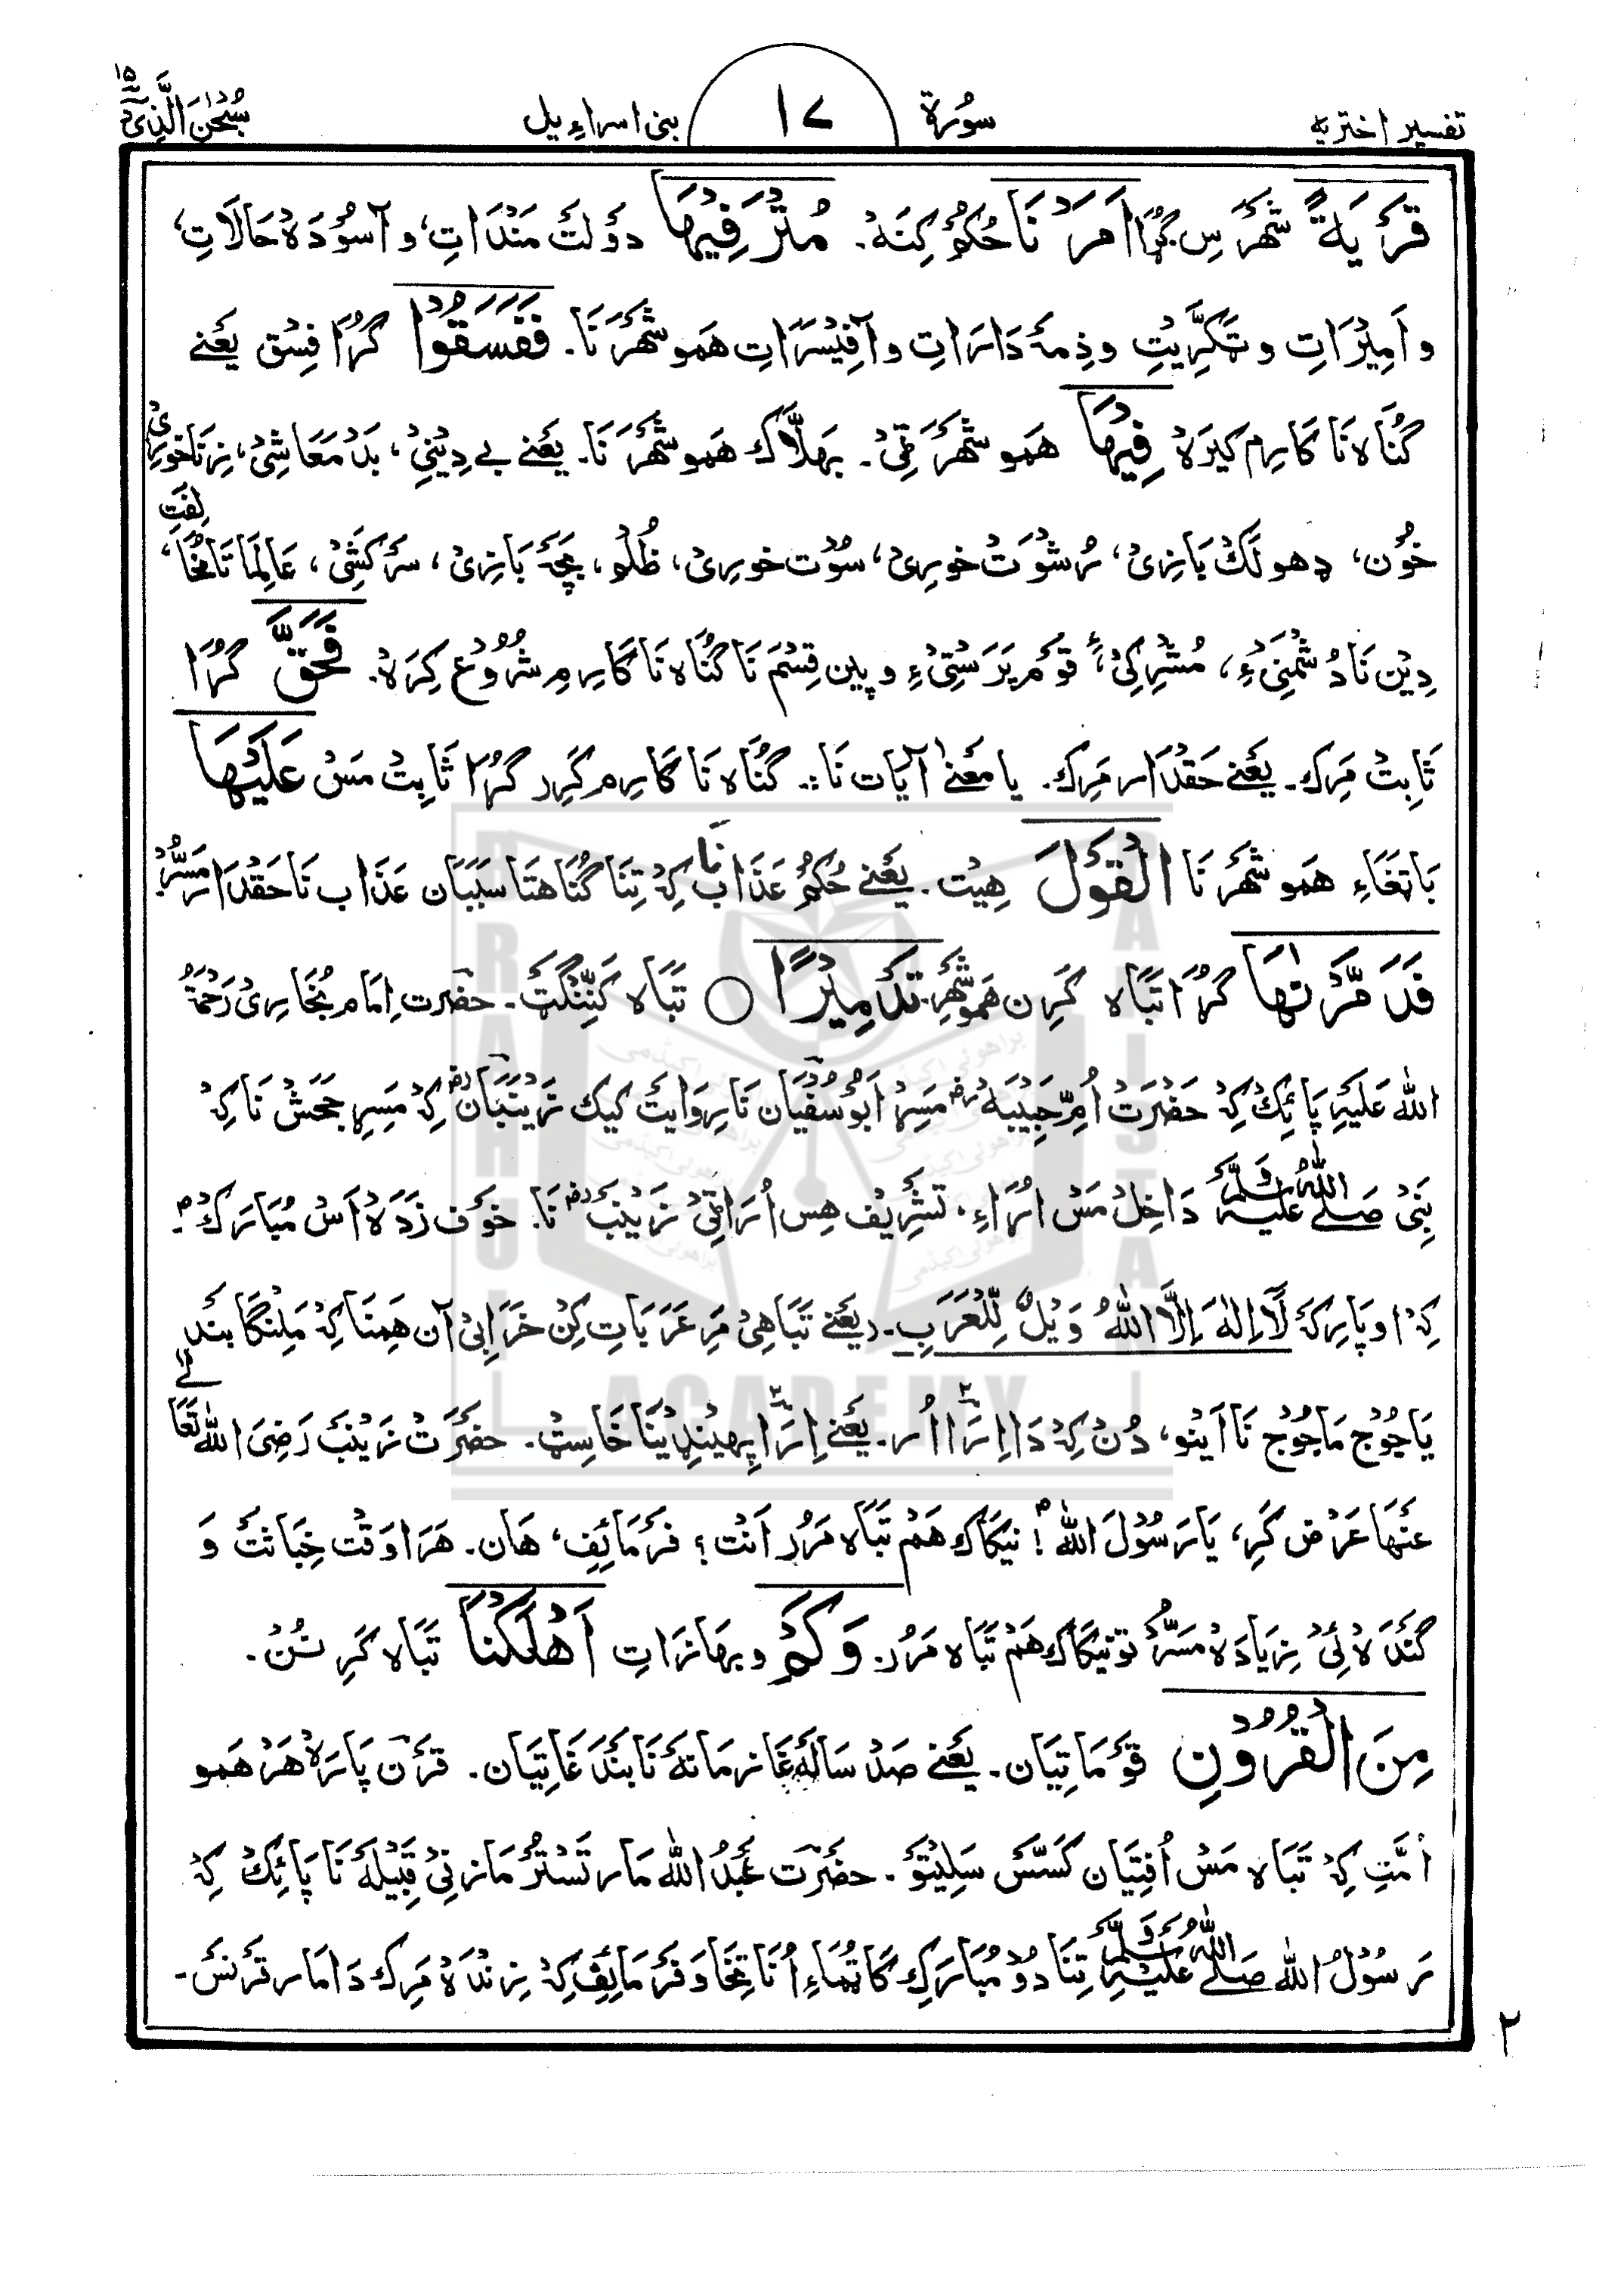 تفسیر اختریہ سُورۃ ۱۷ بنی اسراءیل سُبْحٰنَ الَّذِیْۤ ۱۵
قَرْیَةً شَہْرَس گُڑَا اَمَرْنَا حُکُمْ کِنَہْ. مُتْرَفِیْهَا دَوْلَتْ مَنْدَاتِ، و آسُوْدَہْ حَالَاتِ،
و اَمِیْرَاتِ و ٹَکِّرِیْتِ و ذِمَّہْ دَارَاتِ و آفِیْسَرَاتِ هَمو شَہْرَنَا. فَفَسَقُوْا گُڑَا فِسْق یَعْنے
گُنَاہ نَا کَارِم کیرَہْ فِیْهَا هَمو شَہْرَ ٹِیْ. بَهلَّاک هَمو شَہْرَنَا. یَعْنے بے دِیْنِیْ، بَدْ مَعَاشِیْ، زِنَا خورِیْ
خُون، دھو لَکْ بَازِیْ، رُشْوَتْ خورِیْ، سُوْت خورِیْ، ظُلْم، بَچَّہْ بَازِیْ، سَرْکَشِیْ، عَالِمَاتَا نخَا، لِفَتِ
دِیْن نَا دُشْمَنِیْءِ، مُشْرِکِیْ، قَوْم پَرَسْتِیْءِ و پین قِسْمَ نَا گُنَاہ نَا کَارِمِ شُرُوْع کِرَہْ. فَحَقَّ گُڑَا
ثَابِتْ مَرِک. یَعْنے حَقْدَار مَرِک. یا مَعْنٰے آیَات نَا: گُنَاہ نَا کَارِم کَرِر گُڑَا ثَابِتْ مَسْ عَلَیْهَا
بَاتَغَاءِ هَمو شَہْرَنَا الْقَوْلُ هِیْت. یَعْنے حُکُمْ عَذَاب نَا کِہْ تِنَا گُنَاهتَا سَبَبَان عَذَاب نَا حَقْدَار مَسُّرْ
فَدَمَّرْنٰهَا گُڑَا تَبَاہ کَرِن هَمو شَہْرِ تَدْمِیْرًا ○ تَبَاہ کَنِّنْگَٹْ. حَضْرتِ اِمَام بُخَارِیْ رَحْمَۃُ
اللہ عَلَیْہِ پَائِکْ کِہْ حَضْرَتْ اُمِّ حَبِیْبَہْ رض مَسِرْ اَبُوْ سُفْیَان نَا رِوَایَتْ کیک زَیْنَبَان رض کِہْ مَسِرِ جَحَشْ نَا کِہْ
نَبِیْ صَلَّے اللہُ عَلَیْہِ وَسَلَّمْ دَاخِلْ مَسْ اُرَاءِ، تَشْرِیْف هِس اُرَا ٹِیْ زَیْنَبْ رض نَا. خَوْف زَدَہْ اَسْ مُبَارَکْ ؐ۔
کِہْ او پَارِکَہْ لَآ اِلٰہَ اِلَّا اللہُ وَیْلٌ لِّلْعَرَبِ. یَعْنے تَبَاهِیْ مَرِ عَرَبَاتِ کِن خَرَابِیْ آن هَمِنَا کِہْ مَلِنْگَا بَند
یَاجُوْج مَاجُوْج نَا اَیْنو، دُنْ کِہْ دَا اِرَا اُر. یَعْنے اِرَا پِهِنْدِیْنَا خَاسِت. حَضْرَتْ زَیْنَبْ رَضِیَ اللہُ تَعَالٰے
عَنْهَا عَرْض کَرِ، یَا رَسُوْلَ اللہ ؐ! نیکَاک هَمْ تَبَاہ مَرُر اَنْت؟ فَرْمَائِف، هَان. هَرَا وَقْت خِبَاثَتْ وَ
گَنْدَہ لِیْ زِیَادَہْ مَسُّرْ تو نیکَاک هَمْ تَبَاہ مَرُر. وَکَمْ و بهَازَاتِ اَهْلَکْنَا تَبَاہ کَرِ نَنْ.
مِنَ الْقُرُوْنِ قَوْمَا تِیَان. یَعْنے صَدْ سَالَہْ غَا زمَانَہ نَا بَنْدَغَا تِیَان. قَرْن پَارَہْ هَرْ هَمو
اُمَّتِ کِہْ تَبَاہ مَسْ اُفِتِیَان کَسَّسْ سَلِیْتَوْ. حَضْرَت عَبْدُ اللہ مَار تَسْتُرْ مَازِنِیْ قَبِیْلَہْ نَا پَائِکْ کِہْ
رَسُوْلُ اللہ صَلَّے اللہُ عَلَیْہِ وَسَلَّمْ تِنَا دُوْ مُبَارَکِ کَاٹُمَاءِ اُنَا تِخَا وَ فَرْمَائِف کِہْ زِنْدَہْ مَرِک دَا مَار قَرْنَسْ۔
۲